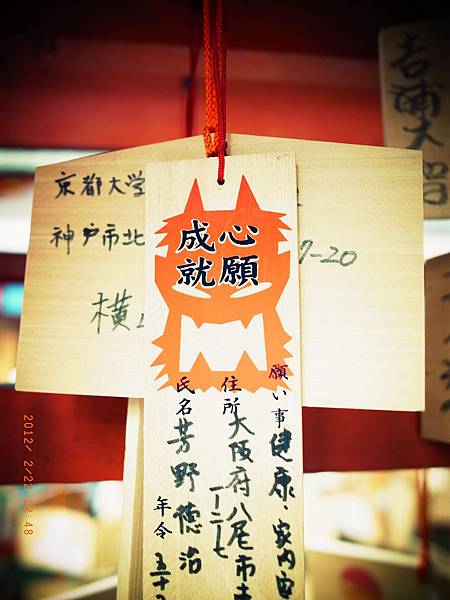 京都大学
神戸市北
7-20
横山
吉浦大学
心願
成就
願い事 健康・家内安
住所 大阪府八尾市
一-二-七
氏名 芳野徳治
年令 五十
2012/ 2/22 12:48